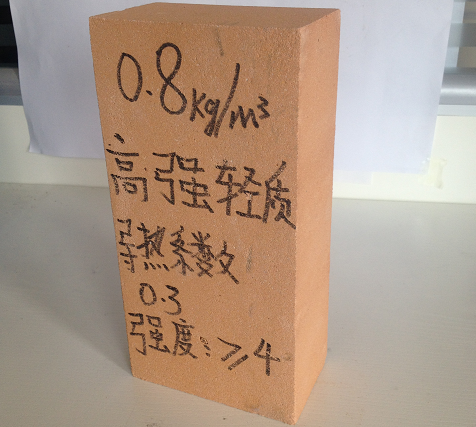 0.8kg/m³
高强轻质
导热系数
0.3
强度:≥4